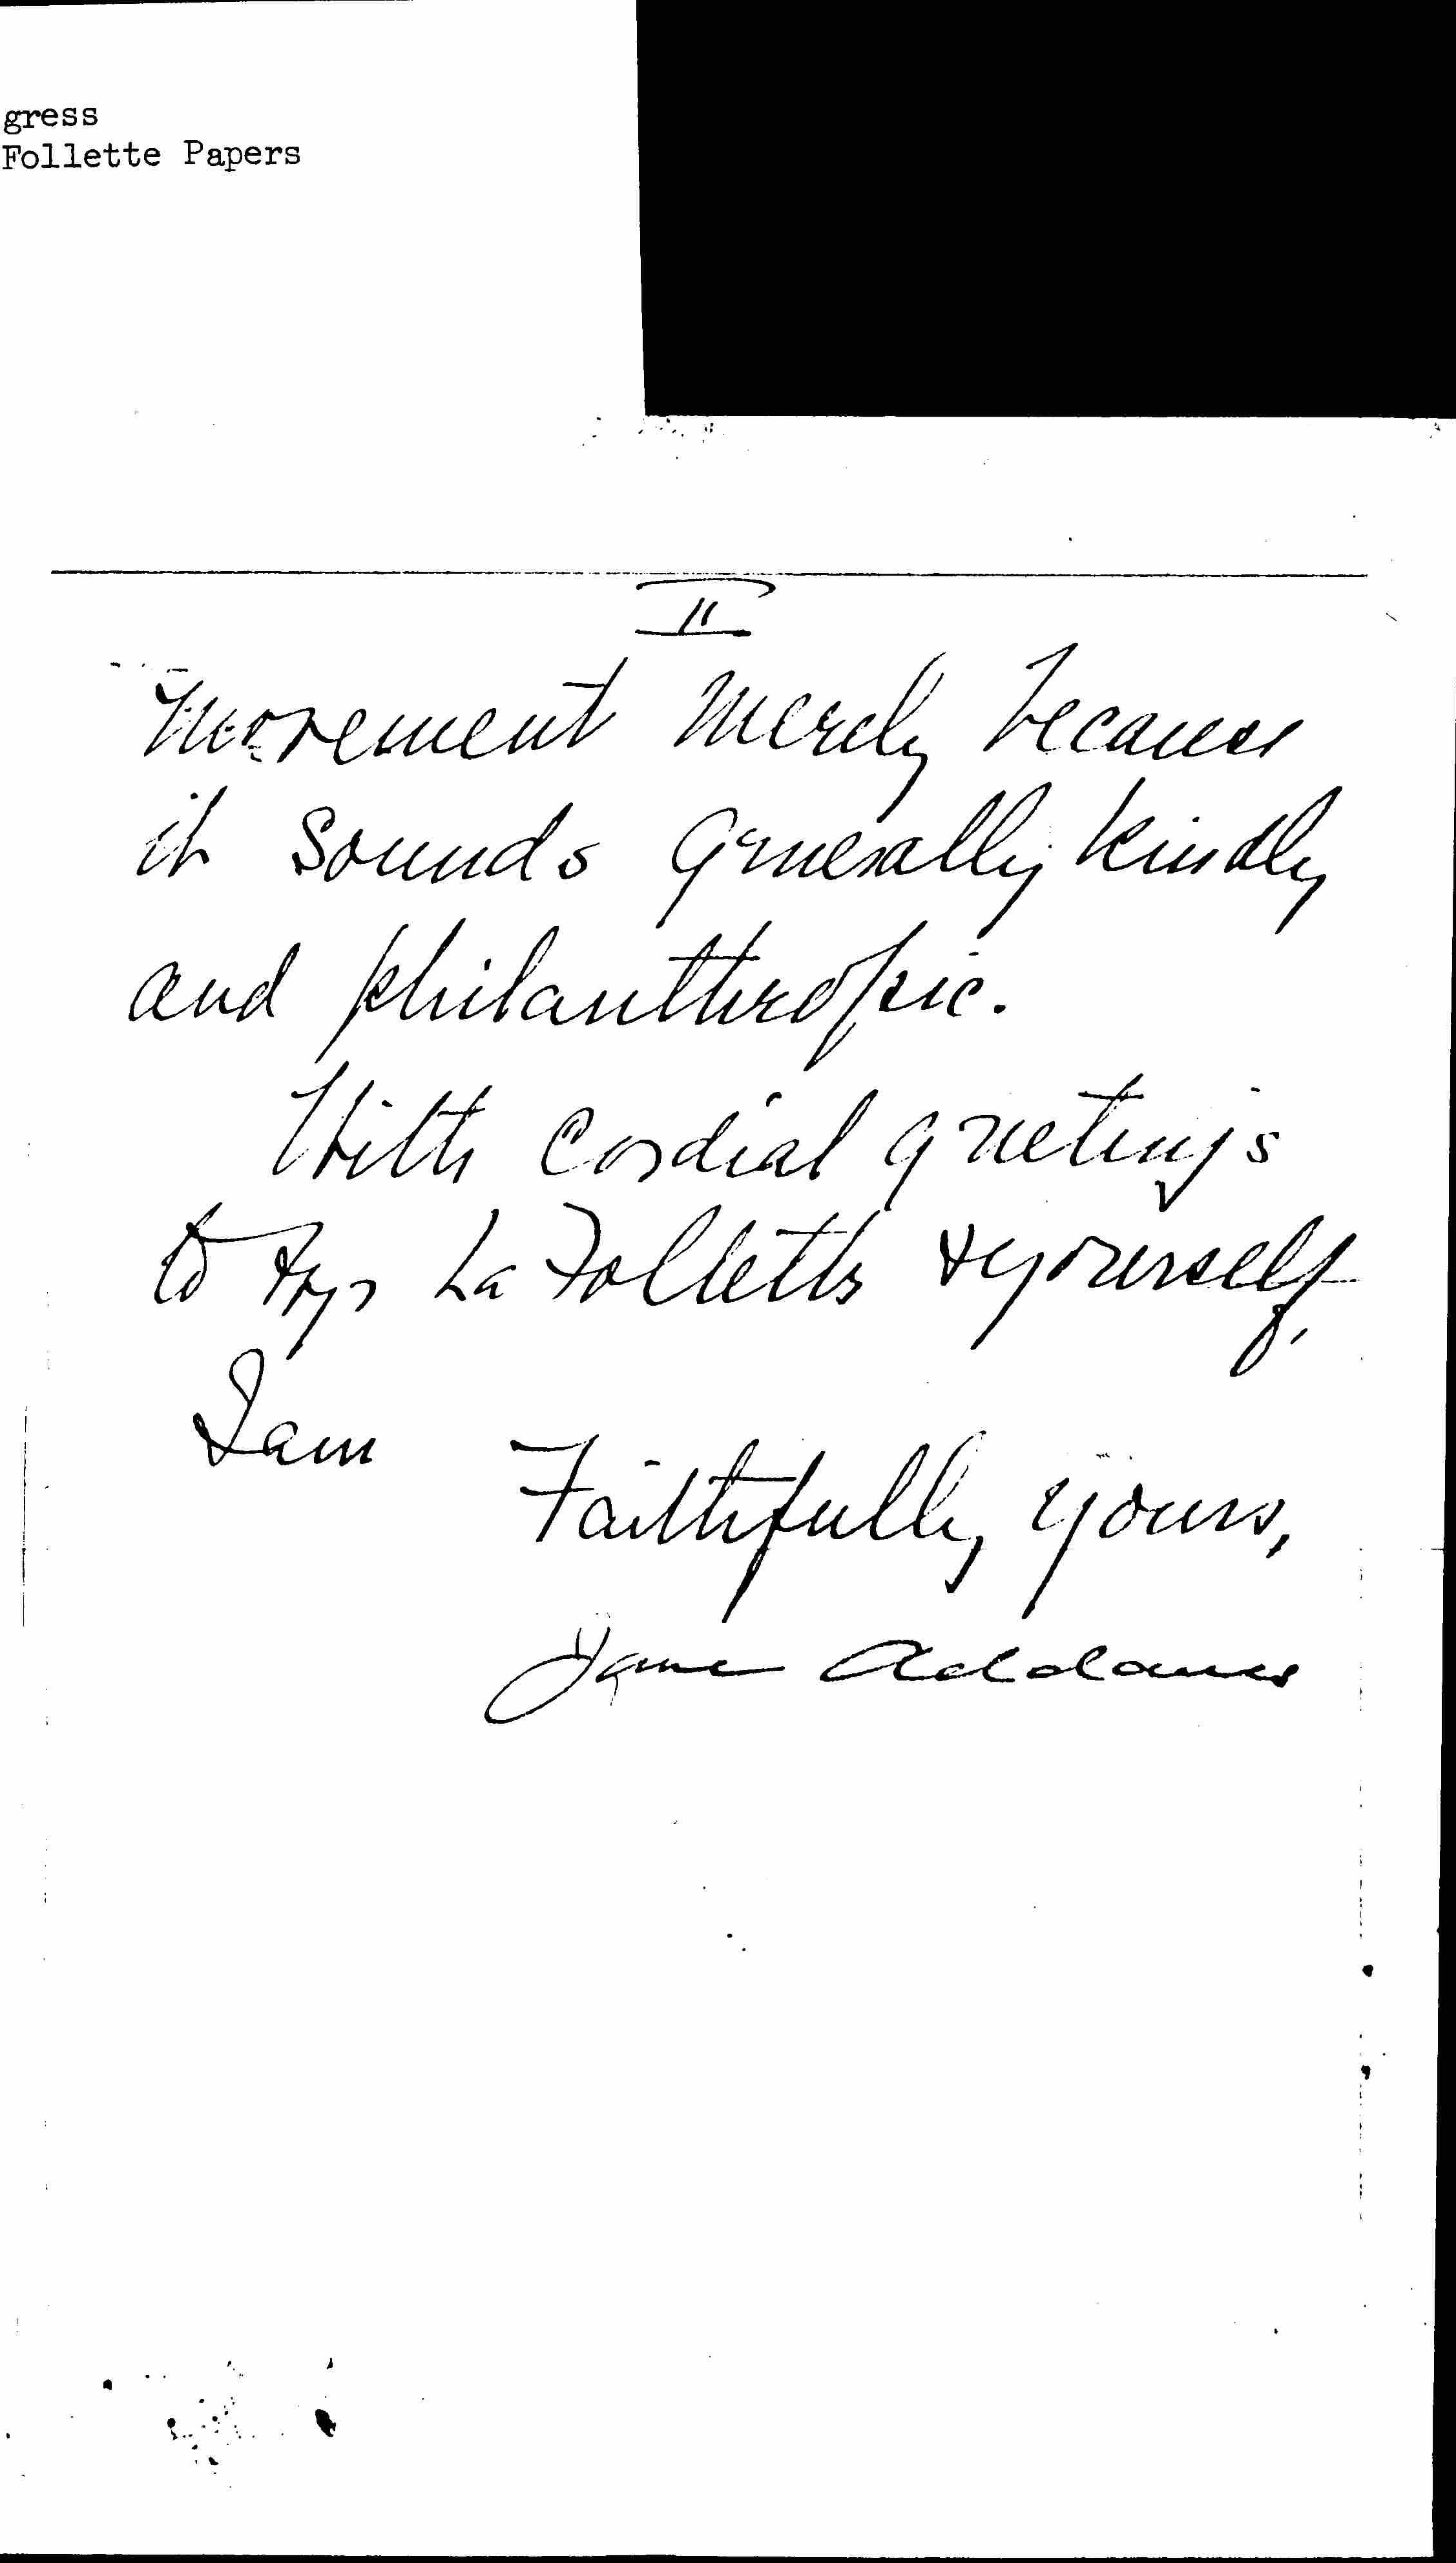 gress
Follette Papers
II
movement merely because
it sounds generally kindly
and philanthropic.
With cordial greetings
to La Follette & yourself,
I am
Faithfully yours,
Jane Addams